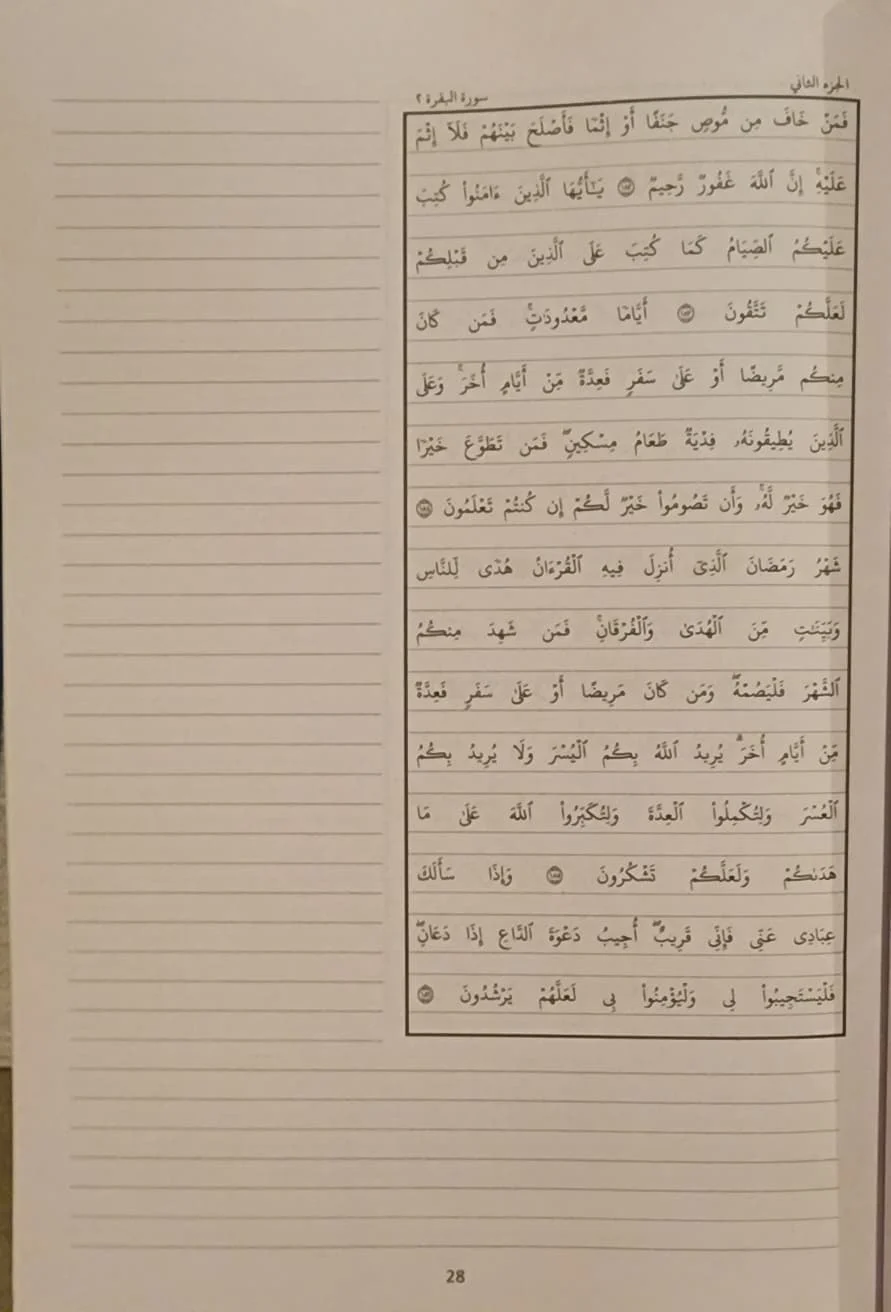 الجزء الثاني
سورة البقرة ٢
فَمَنْ خَافَ مِن مُّوصٍ جَنَفًا أَوْ إِثْمًا فَأَصْلَحَ بَيْنَهُمْ فَلَآ إِثْمَ
عَلَيْهِۚ إِنَّ ٱللَّهَ غَفُورٌ رَّحِيمٌ ١٨٢ يَـٰٓأَيُّهَا ٱلَّذِينَ ءَامَنُوا۟ كُتِبَ
عَلَيْكُمُ ٱلصِّيَامُ كَمَا كُتِبَ عَلَى ٱلَّذِينَ مِن قَبْلِكُمْ
لَعَلَّكُمْ تَتَّقُونَ ١٨٣ أَيَّامًا مَّعْدُودَٰتٍۚ فَمَن كَانَ
مِنكُم مَّرِيضًا أَوْ عَلَىٰ سَفَرٍ فَعِدَّةٌ مِّنْ أَيَّامٍ أُخَرَۚ وَعَلَى
ٱلَّذِينَ يُطِيقُونَهُۥ فِدْيَةٌ طَعَامُ مِسْكِينٍۖ فَمَن تَطَوَّعَ خَيْرًا
فَهُوَ خَيْرٌ لَّهُۥۚ وَأَن تَصُومُوا۟ خَيْرٌ لَّكُمْ إِن كُنتُمْ تَعْلَمُونَ ١٨٤
شَهْرُ رَمَضَانَ ٱلَّذِىٓ أُنزِلَ فِيهِ ٱلْقُرْءَانُ هُدًى لِّلنَّاسِ
وَبَيِّنَـٰتٍ مِّنَ ٱلْهُدَىٰ وَٱلْفُرْقَانِۚ فَمَن شَهِدَ مِنكُمُ
ٱلشَّهْرَ فَلْيَصُمْهُۖ وَمَن كَانَ مَرِيضًا أَوْ عَلَىٰ سَفَرٍ فَعِدَّةٌ
مِّنْ أَيَّامٍ أُخَرَۗ يُرِيدُ ٱللَّهُ بِكُمُ ٱلْيُسْرَ وَلَا يُرِيدُ بِكُمُ
ٱلْعُسْرَ وَلِتُكْمِلُوا۟ ٱلْعِدَّةَ وَلِتُكَبِّرُوا۟ ٱللَّهَ عَلَىٰ مَا
هَدَىٰكُمْ وَلَعَلَّكُمْ تَشْكُرُونَ ١٨٥ وَإِذَا سَأَلَكَ
عِبَادِى عَنِّى فَإِنِّى قَرِيبٌۖ أُجِيبُ دَعْوَةَ ٱلدَّاعِ إِذَا دَعَانِۖ
فَلْيَسْتَجِيبُوا۟ لِى وَلْيُؤْمِنُوا۟ بِى لَعَلَّهُمْ يَرْشُدُونَ ١٨٦
28